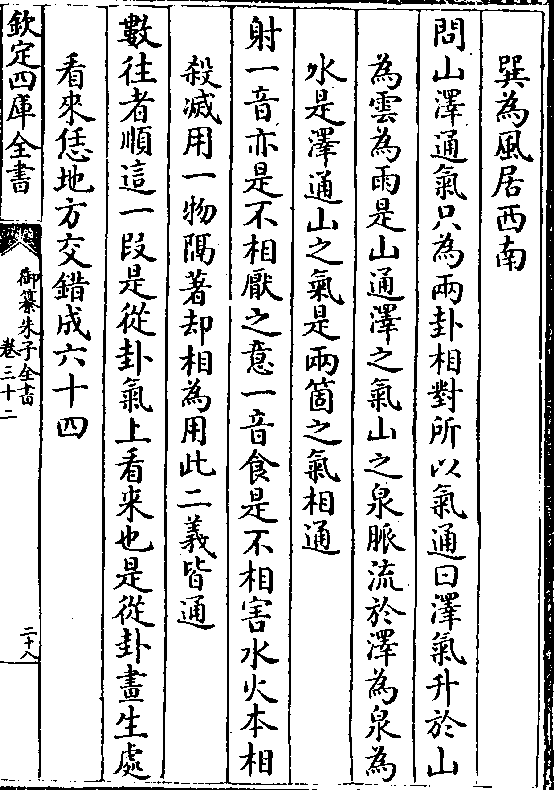 巽為風居西南
問山澤通氣只為兩卦相對所以氣通曰澤氣升於山
為雲為雨是山通澤之氣山之泉脈流於澤為泉為
水是澤通山之氣是兩箇之氣相通
射一音亦是不相厭之意一音食是不相害水火本相
殺滅用一物隔著却相為用此二義皆通
數往者順這一段是從卦氣上看来也是從卦畫生處
看來恁地方交錯成六十四
欽定四庫全書
御纂朱子全書
卷三十二
二十八